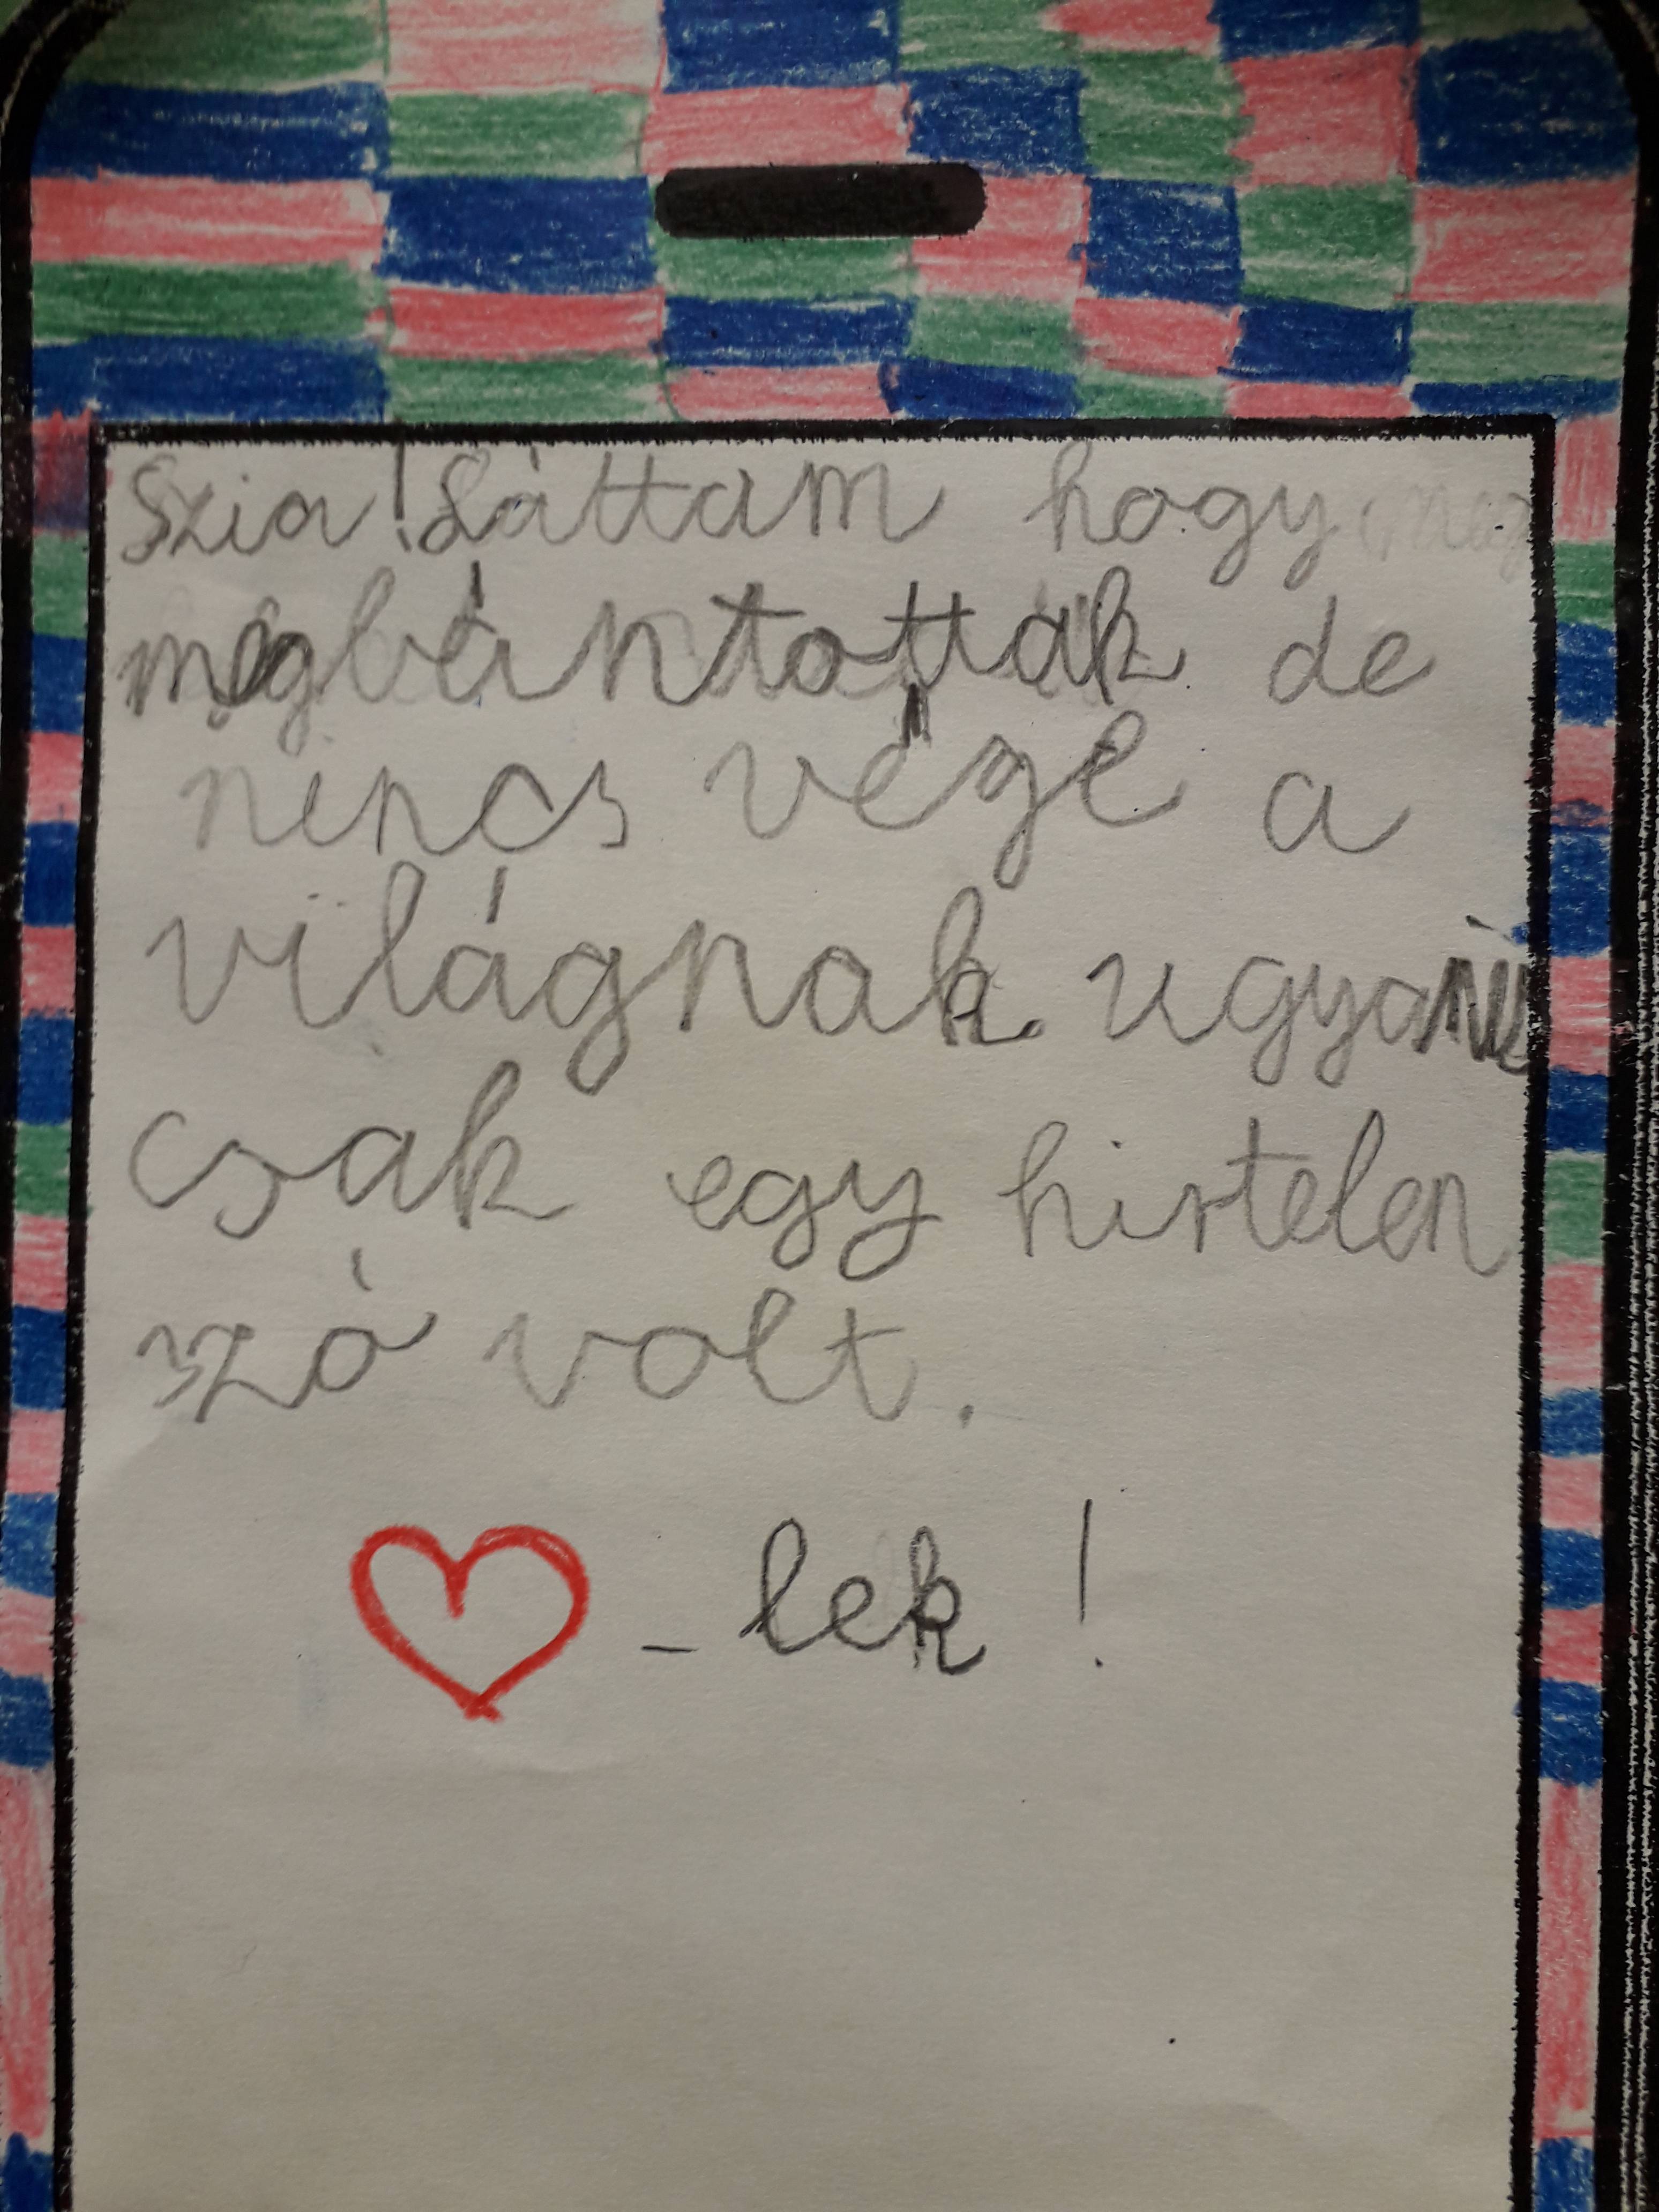 Szia! Láttam hogy
megbántottak de
nincs vége a
világnak ugyanis
csak egy hirtelen
szó volt.
♥-lek!